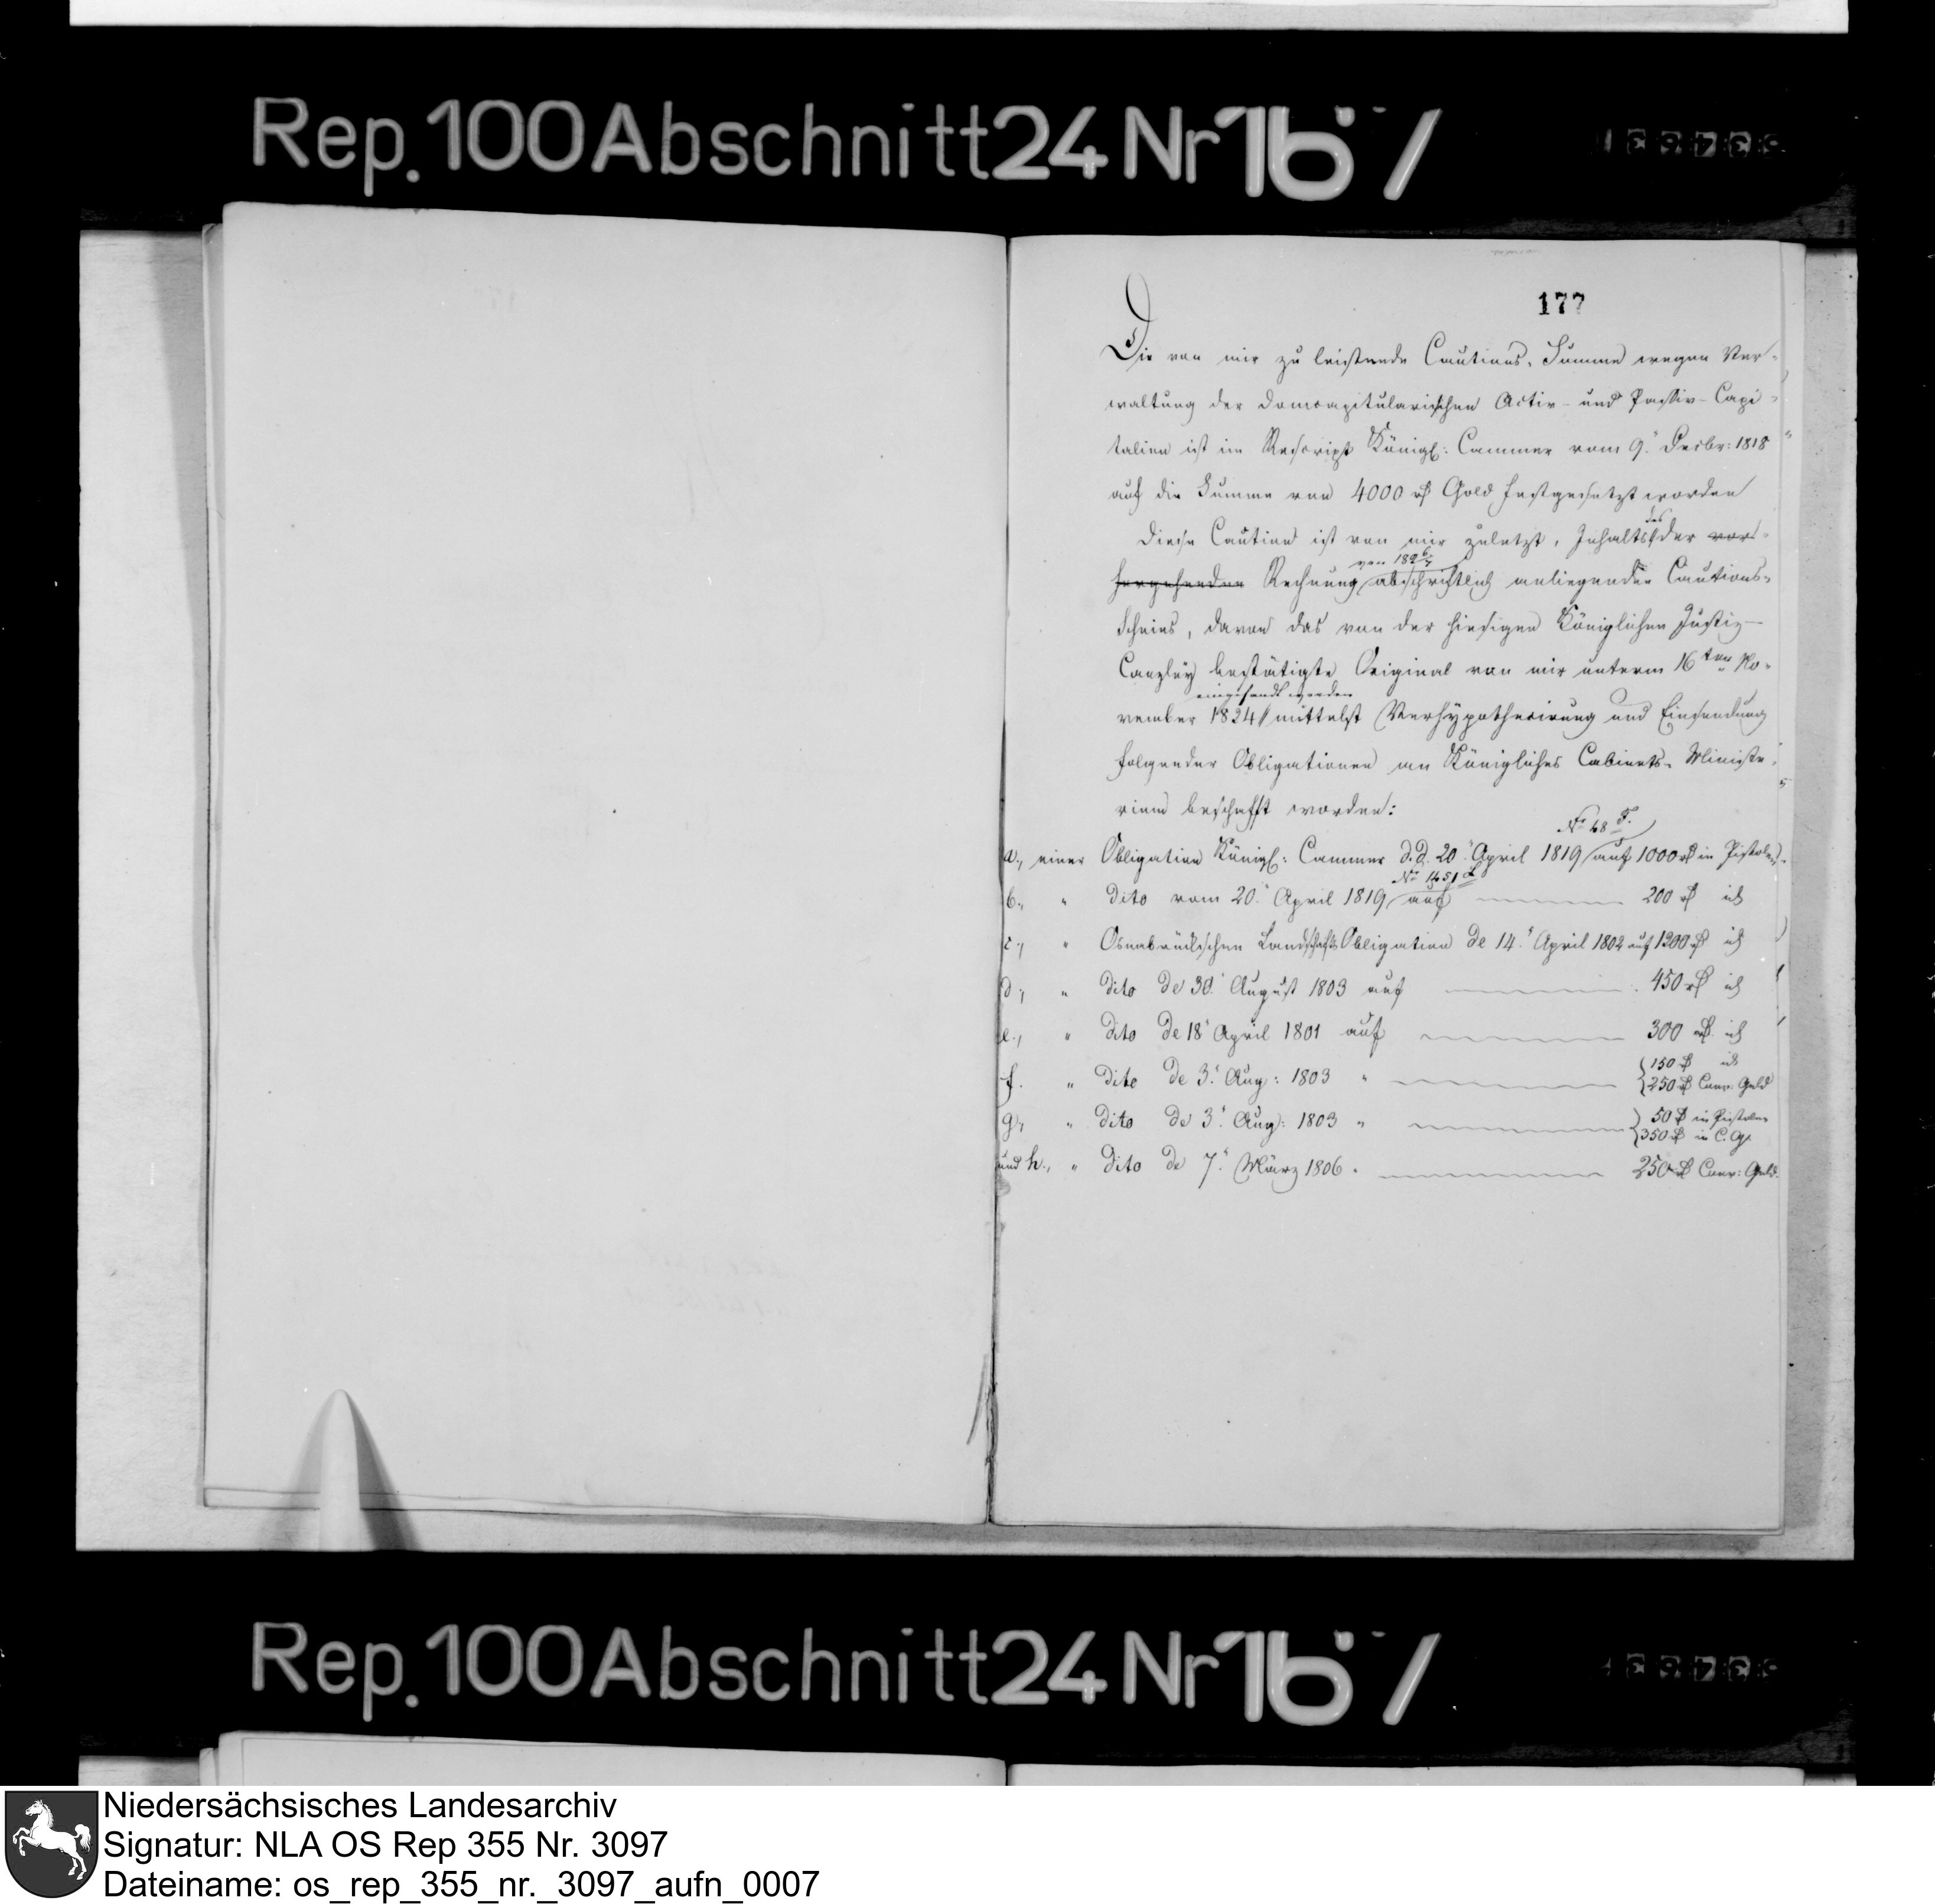 Rep. 100 Abschnitt 24 Nr 167
177
Die von mir zu leistende Cautions-Summe wegen Ver-
waltung der domcapitularischen Activ- und Passiv-Capi-
talien ist im Rescript Königl: Cammer vom 9. Decbr: 1818
auf die Summe von 4000 rℓ Gold festgesetzt worden
Diese Caution ist von mir zuletzt, Inhalts des der vor-
hergehenden Rechnung von 1826/7 abschriftlich anliegenden Cautions-
scheins, davon das von der hiesigen Königlichen Justiz-
Canzley bestätigte Original von mir unterm 16ten No-
vember 1824 eingesandt worden mittelst Verhypothecirung und Einsendung
folgender Obligationen an Königliches Cabinets-Ministe-
rium beschafft worden:
a., einer Obligation Königl: Cammer d. d. 20. April 1819 No 48 auf 1000 rℓ in Pistolen.
b., " dito vom 20. April 1819 No 1451 auf 200 rℓ id
c., " Osnabrückschen Landschafts Obligation de 14. April 1802 auf 1200 rℓ id
d., " dito de 30. August 1803 auf 450 rℓ id
e., " dito de 18 April 1801 auf 300 rℓ id
f. " dito de 3. Aug: 1803 " 150 rℓ id
250 rℓ Conv: Geld
g., " dito de 3. Aug: 1803 " 50 rℓ in Pistolen
350 rℓ in C. G.
und h., " dito de 7. März 1806 " 250 rℓ Conv: Geld.
Rep. 100 Abschnitt 24 Nr 167
Niedersächsisches Landesarchiv
Signatur: NLA OS Rep 355 Nr. 3097
Dateiname: os_rep_355_nr._3097_aufn_0007